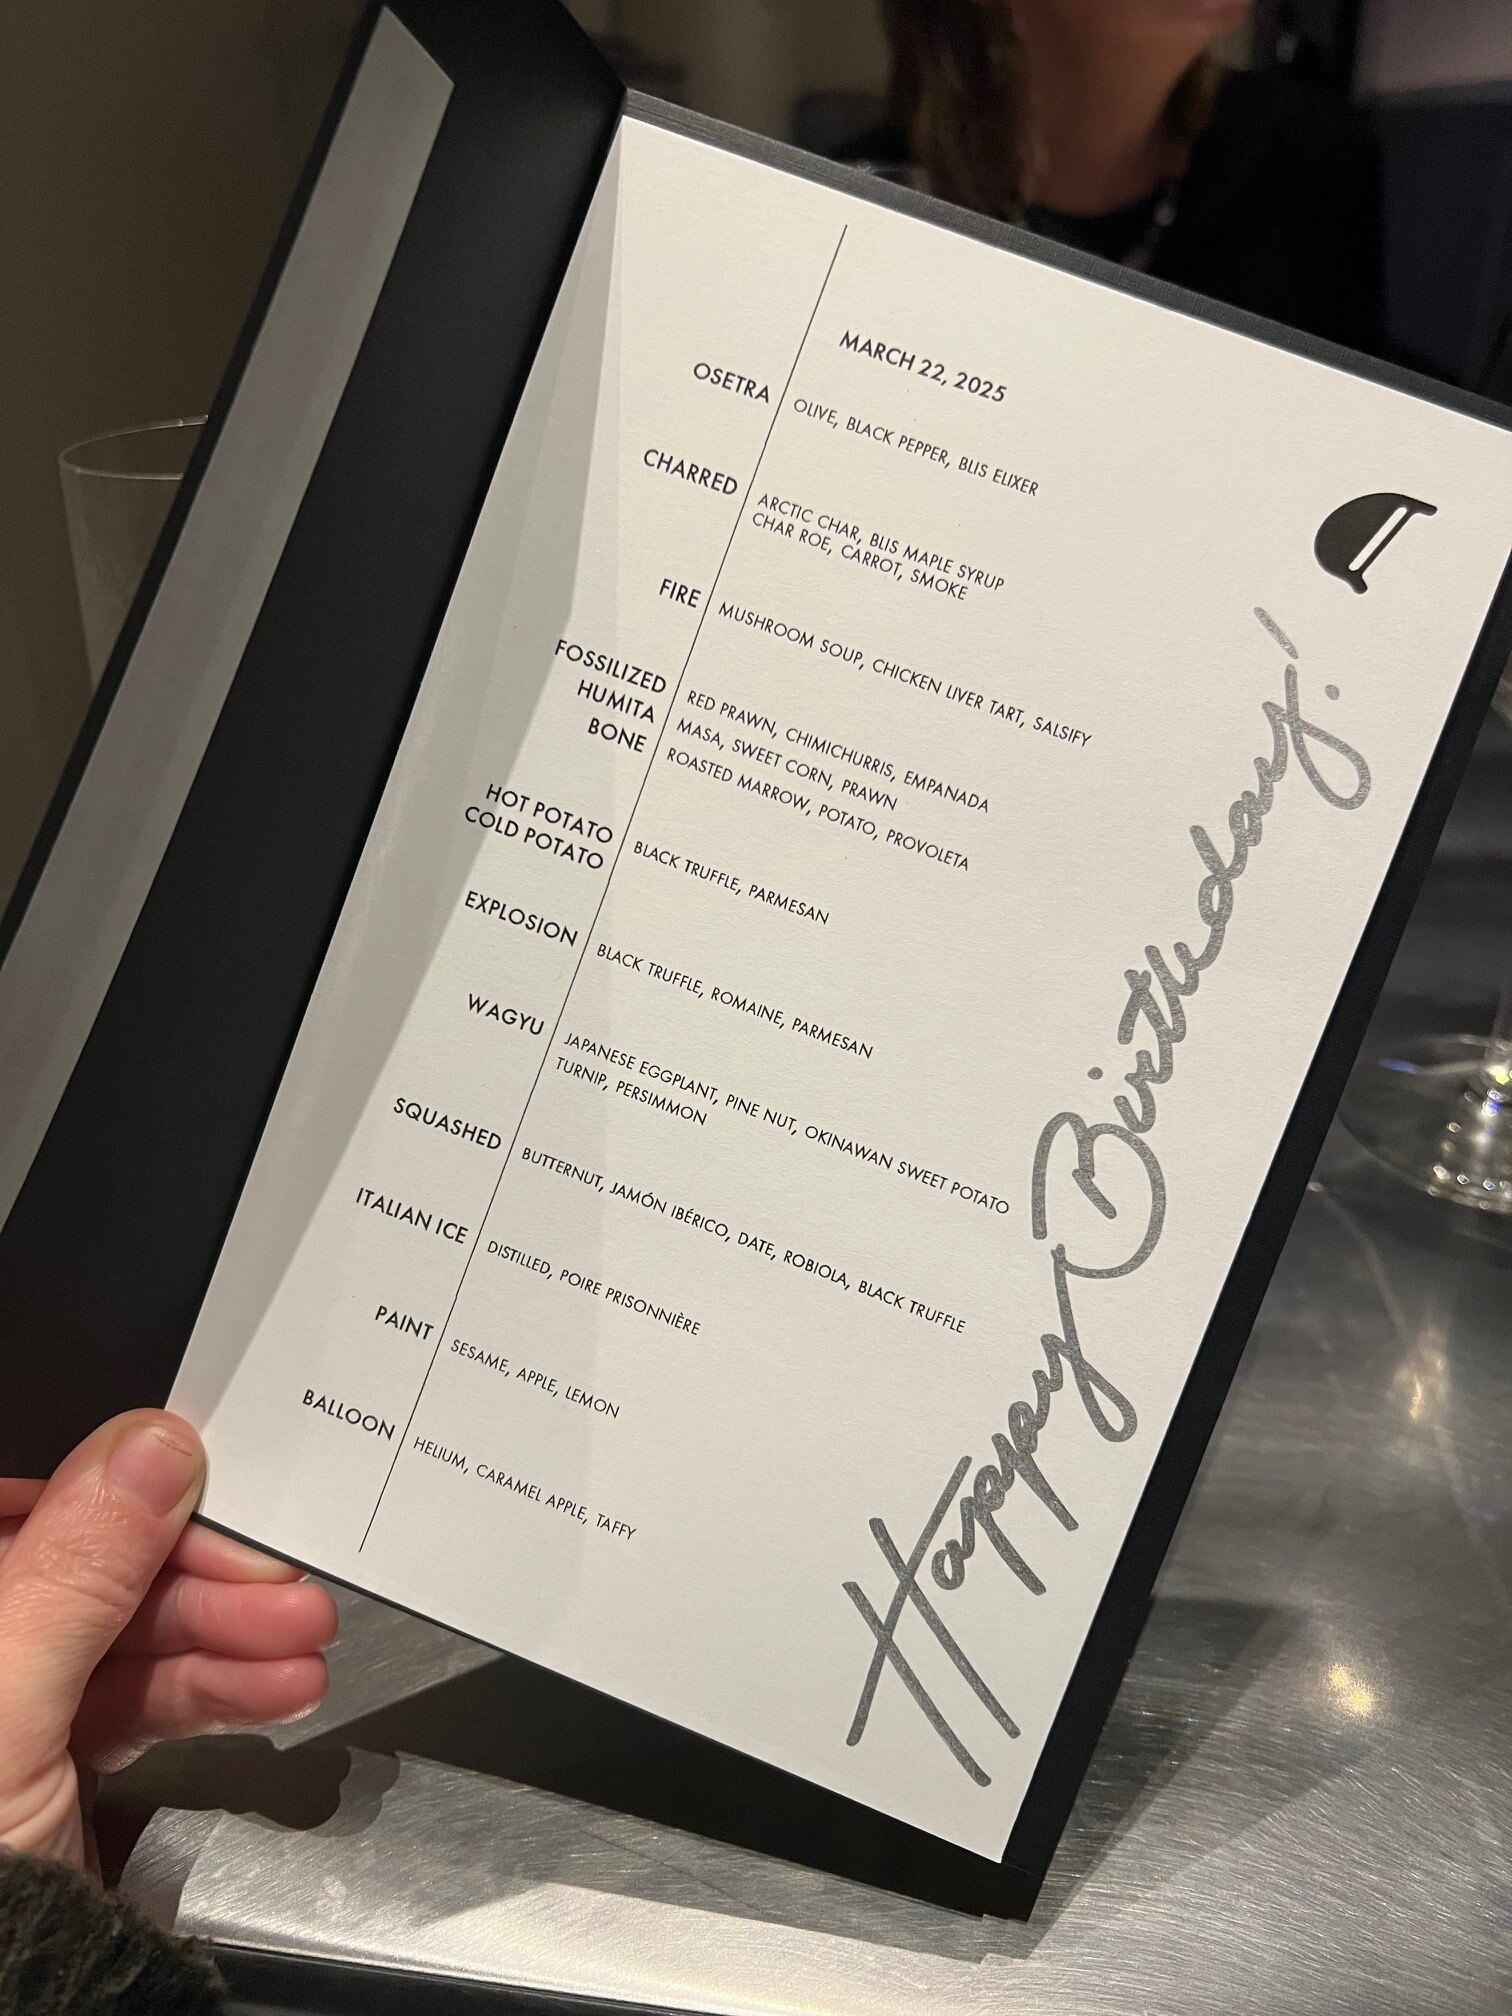 MARCH 22, 2025
OSETRA
OLIVE, BLACK PEPPER, BLIS ELIXER
CHARRED
ARCTIC CHAR, BLIS MAPLE SYRUP
CHAR ROE, CARROT, SMOKE
FIRE
MUSHROOM SOUP, CHICKEN LIVER TART, SALSIFY
FOSSILIZED
RED PRAWN, CHIMICHURRIS, EMPANADA
HUMITA
MASA, SWEET CORN, PRAWN
BONE
ROASTED MARROW, POTATO, PROVOLETA
HOT POTATO
COLD POTATO
BLACK TRUFFLE, PARMESAN
EXPLOSION
BLACK TRUFFLE, ROMAINE, PARMESAN
WAGYU
JAPANESE EGGPLANT, PINE NUT, OKINAWAN SWEET POTATO
TURNIP, PERSIMMON
SQUASHED
BUTTERNUT, JAMÓN IBÉRICO, DATE, ROBIOLA, BLACK TRUFFLE
ITALIAN ICE
DISTILLED, POIRE PRISONNIÈRE
PAINT
SESAME, APPLE, LEMON
BALLOON
HELIUM, CARAMEL APPLE, TAFFY
Happy Birthday!